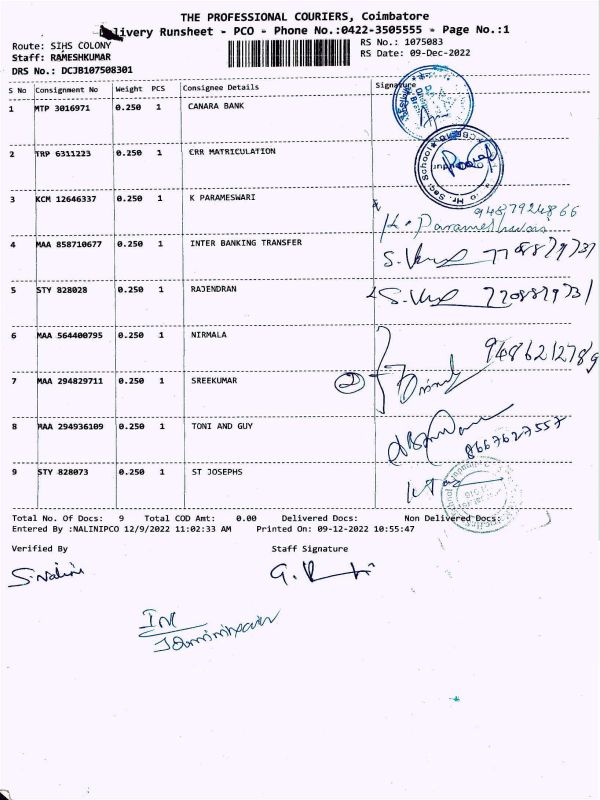 THE PROFESSIONAL COURIERS, Coimbatore
Delivery Runsheet - PCO - Phone No.:0422-3505555 - Page No.:1
Route: SIHS COLONY
RS No.: 1075083
Staff: RAMESHKUMAR
RS Date: 09-Dec-2022
DRS No.: DCJB107508301
S No Consignment No Weight PCS Consignee Details Signature
1 MTP 3016971 0.250 1 CANARA BANK
2 TRP 6311223 0.250 1 CRR MATRICULATION
3 KCM 12646337 0.250 1 K PARAMESWARI
9487924866
K. Parameshwari
4 MAA 858710677 0.250 1 INTER BANKING TRANSFER
7708879731
5 STY 828028 0.250 1 RAJENDRAN
7708879731
6 MAA 564400795 0.250 1 NIRMALA
9486212789
7 MAA 294829711 0.250 1 SREEKUMAR
2
8 MAA 294936109 0.250 1 TONI AND GUY
8667627557
9 STY 828073 0.250 1 ST JOSEPHS
Total No. Of Docs: 9 Total COD Amt: 0.00 Delivered Docs: Non Delivered Docs:
Entered By :NALINIPCO 12/9/2022 11:02:33 AM Printed On: 09-12-2022 10:55:47
Verified By Staff Signature
S.Nalini